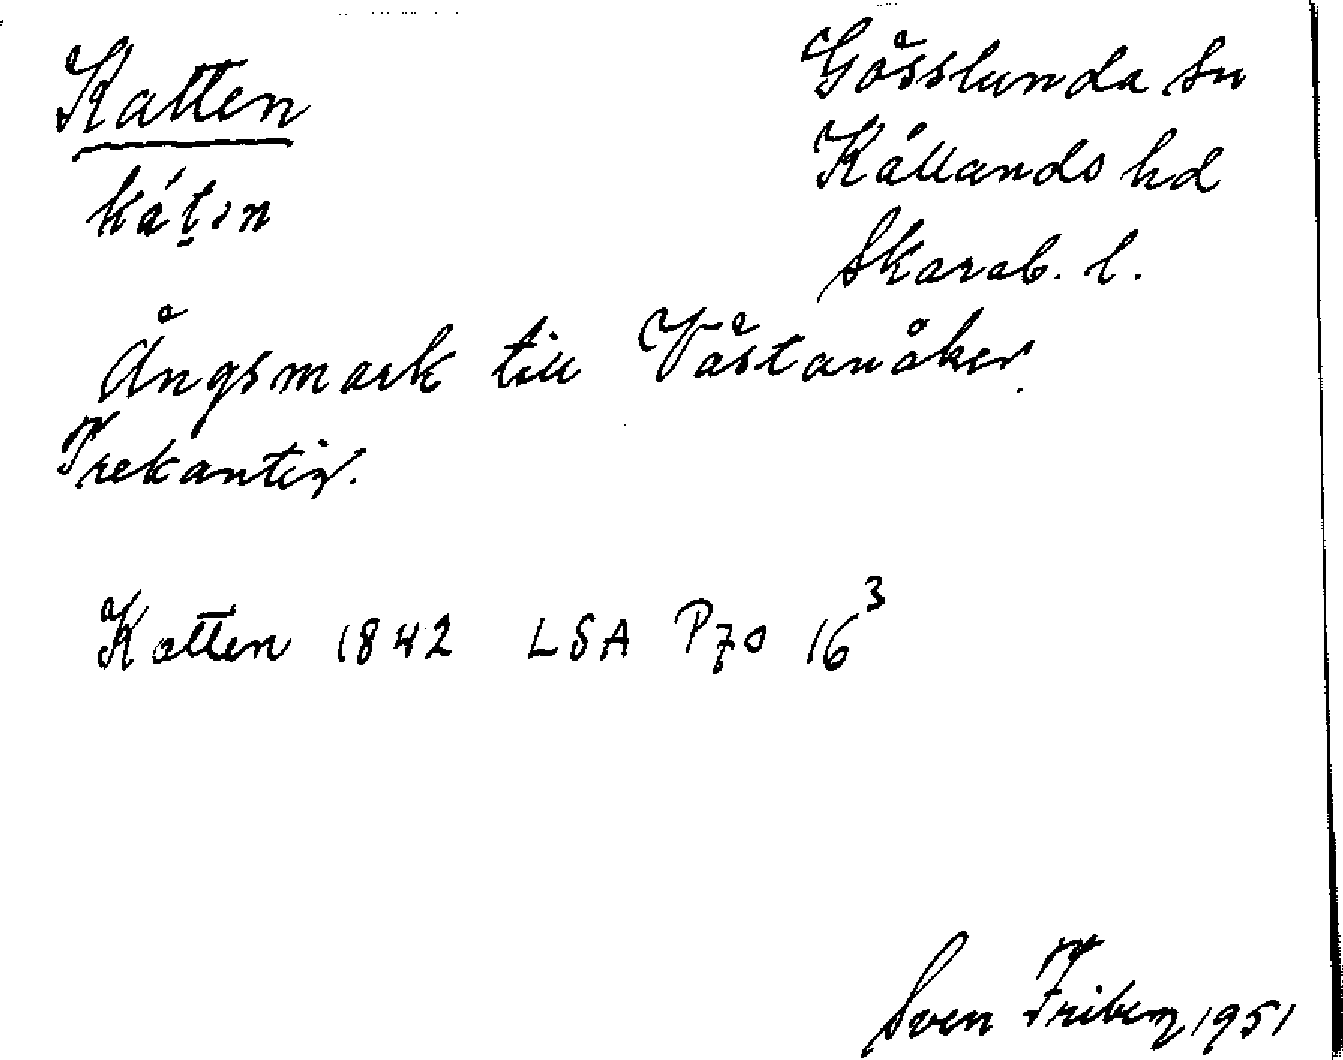 Katten
kát̲ɪn
Gösslunda sn
Kållands hd
Skarab. l.
Ängsmark till Västanåker.
Trekantig.
Katten 1842 LSA P70 16³
Sven Friberg 1951